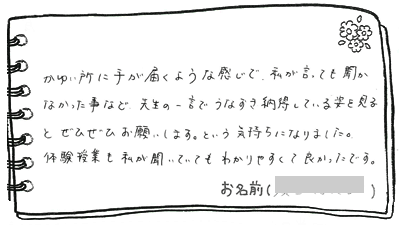 かゆい所に手が届くような感じで、私が言っても聞か
なかった事など、先生の一言でうなずき納得している姿を見る
と ぜひぜひお願いします。という気持ちになりました。
体験授業も私が聞いていてもわかりやすくて良かったです。
お名前(　　　　)